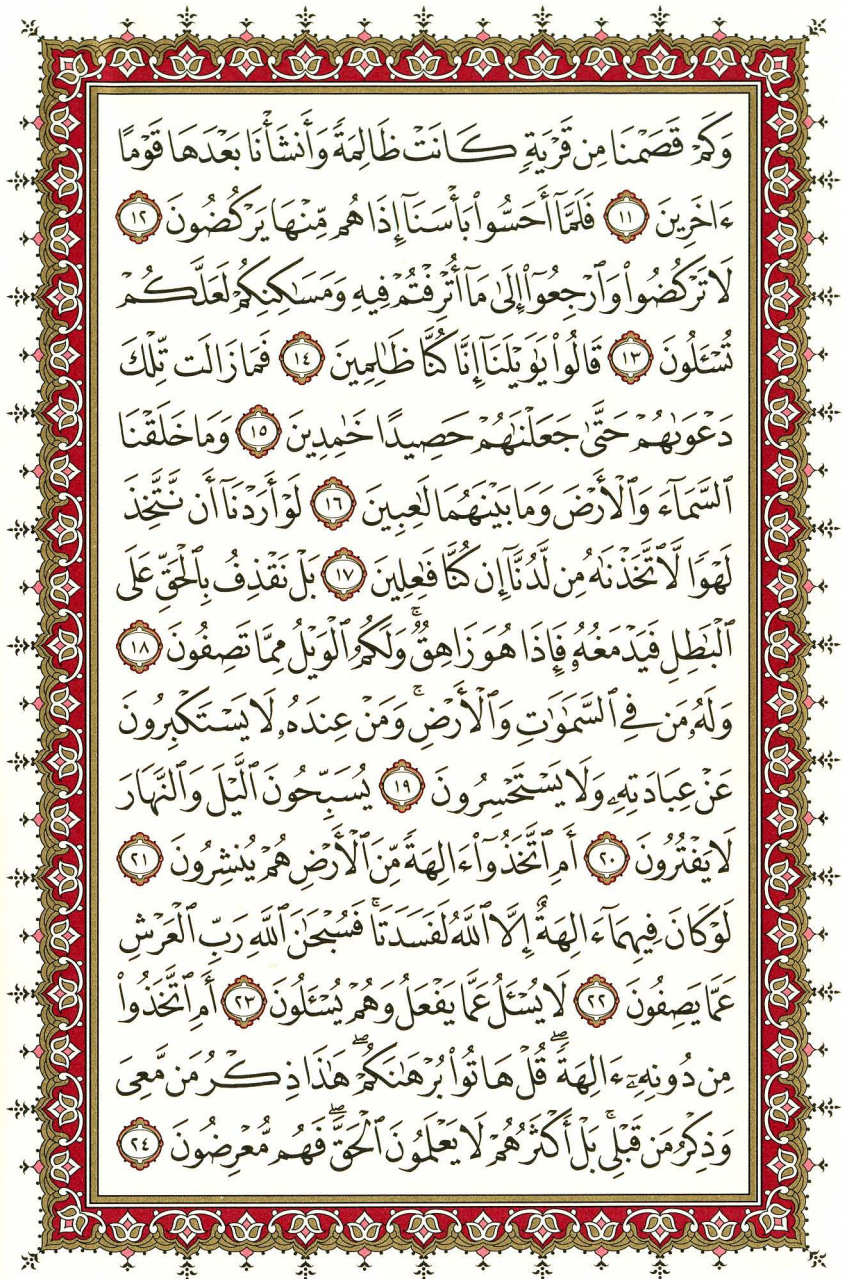 وَكَمْ قَصَمْنَا مِن قَرْيَةٍ كَانَتْ ظَالِمَةً وَأَنشَأْنَا بَعْدَهَا قَوْمًا
ءَاخَرِينَ ١١ فَلَمَّآ أَحَسُّوا۟ بَأْسَنَآ إِذَا هُم مِّنْهَا يَرْكُضُونَ ١٢
لَا تَرْكُضُوا۟ وَٱرْجِعُوٓا۟ إِلَىٰ مَآ أُتْرِفْتُمْ فِيهِ وَمَسَـٰكِنِكُمْ لَعَلَّكُمْ
تُسْـَٔلُونَ ١٣ قَالُوا۟ يَـٰوَيْلَنَآ إِنَّا كُنَّا ظَـٰلِمِينَ ١٤ فَمَا زَالَت تِّلْكَ
دَعْوَىٰهُمْ حَتَّىٰ جَعَلْنَـٰهُمْ حَصِيدًا خَـٰمِدِينَ ١٥ وَمَا خَلَقْنَا
ٱلسَّمَآءَ وَٱلْأَرْضَ وَمَا بَيْنَهُمَا لَـٰعِبِينَ ١٦ لَوْ أَرَدْنَآ أَن نَّتَّخِذَ
لَهْوًا لَّٱتَّخَذْنَـٰهُ مِن لَّدُنَّآ إِن كُنَّا فَـٰعِلِينَ ١٧ بَلْ نَقْذِفُ بِٱلْحَقِّ عَلَى
ٱلْبَـٰطِلِ فَيَدْمَغُهُۥ فَإِذَا هُوَ زَاهِقٌ ۚ وَلَكُمُ ٱلْوَيْلُ مِمَّا تَصِفُونَ ١٨
وَلَهُۥ مَن فِى ٱلسَّمَـٰوَٰتِ وَٱلْأَرْضِ ۚ وَمَنْ عِندَهُۥ لَا يَسْتَكْبِرُونَ
عَنْ عِبَادَتِهِۦ وَلَا يَسْتَحْسِرُونَ ١٩ يُسَبِّحُونَ ٱلَّيْلَ وَٱلنَّهَارَ
لَا يَفْتُرُونَ ٢٠ أَمِ ٱتَّخَذُوٓا۟ ءَالِهَةً مِّنَ ٱلْأَرْضِ هُمْ يُنشِرُونَ ٢١
لَوْ كَانَ فِيهِمَآ ءَالِهَةٌ إِلَّا ٱللَّهُ لَفَسَدَتَا ۚ فَسُبْحَـٰنَ ٱللَّهِ رَبِّ ٱلْعَرْشِ
عَمَّا يَصِفُونَ ٢٢ لَا يُسْـَٔلُ عَمَّا يَفْعَلُ وَهُمْ يُسْـَٔلُونَ ٢٣ أَمِ ٱتَّخَذُوا۟
مِن دُونِهِۦٓ ءَالِهَةً ۖ قُلْ هَاتُوا۟ بُرْهَـٰنَكُمْ ۖ هَـٰذَا ذِكْرُ مَن مَّعِىَ
وَذِكْرُ مَن قَبْلِى ۗ بَلْ أَكْثَرُهُمْ لَا يَعْلَمُونَ ٱلْحَقَّ ۖ فَهُم مُّعْرِضُونَ ٢٤